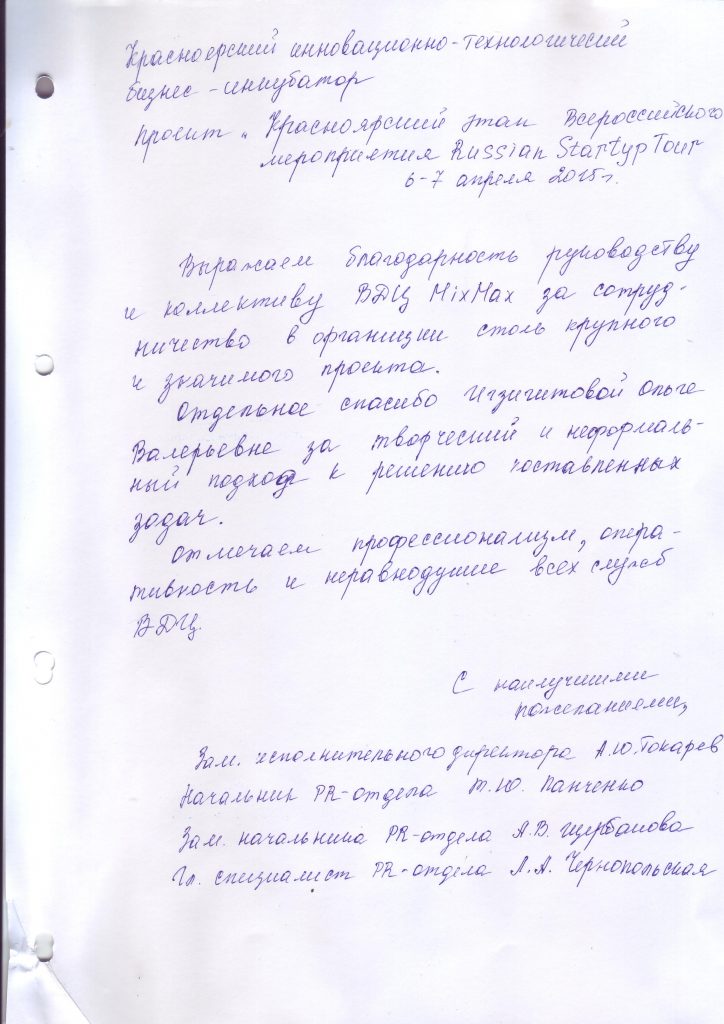 Красноярский инновационно-технологический
бизнес-инкубатор
Проект "Красноярский этап Всероссийского
мероприятия Russian Startup Tour
6-7 апреля 2015г.
Выражаем благодарность руководству
и коллективу ВДЦ MixMax за сотруд-
ничество в организции столь крупного
и значимого проекта.
Отдельное спасибо Игзигитовой Ольге
Валерьевне за творческий и неформаль-
ный подход к решению поставленных
задач.
Отмечаем профессионализм, опера-
тивность и неравнодушие всех служб
ВДЦ.
С наилучшими
пожеланиями,
Зам. исполнительного директора А.Ю. Токарев
Начальник PR-отдела Т.Ю. Панченко
Зам. начальника PR-отдела А.В. Щербакова
Гл. специалист PR-отдела Л.А. Чернопольская